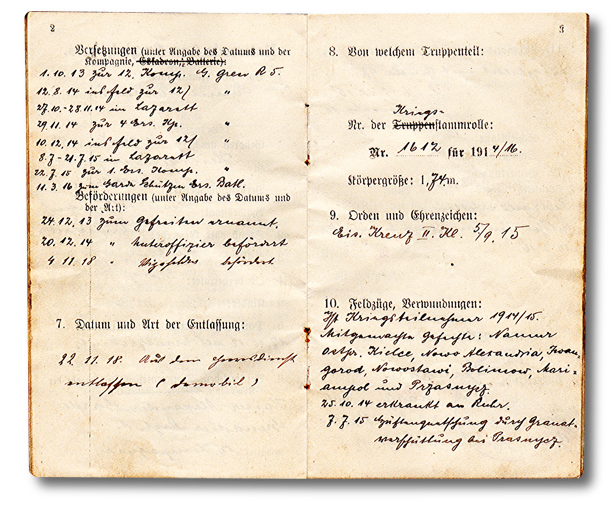 2
Versetzungen (unter Angabe des Datums und der
Kompagnie, Eskadron, Batterie):
1.10.13 zur 12. Komp. G. Gren R 5.
12.8.14 ins Feld zur 12/ "
27.10.-28.11.14 im Lazarett
29.11.14 zur 4 Ers. Kp. "
10.12.14 ins Feld zur 12/ "
8.7-21.7.15 im Lazarett
22.7.15 zur 1. Ers. Komp. "
11.3.16 zum Garde Schützen Ers. Batl.
Beförderungen (unter Angabe des Datums und
der Art):
24.12.13 zum Gefreiten ernannt.
20.12.14 " Unteroffizier befördert
4.11.18 " Vizefeldw. befördert
7. Datum und Art der Entlassung:
22.11.18. Aus dem Heeresdienst
entlassen (demobil)
3
8. Von welchem Truppenteil:
Kriegs-
Nr. der Truppenstammrolle:
Nr. 1612 für 1914/16.
Körpergröße: 1,74 m.
9. Orden und Ehrenzeichen:
Eis. Kreuz II. Kl. 5/9.15
10. Feldzüge, Verwundungen:
Ist Kriegsteilnehmer 1914/15.
Mitgemachte Gefechte: Namur
Ostpr. Kielce, Nowo Alexandria, Iwan-
gorod, Nowostawi, Bolimow, Mari-
ampol und Przasnycz.
25.10.14 erkrankt an Ruhr.
7.7.15 Hüftenquetschung durch Granat-
verschüttung bei Prasnycz.